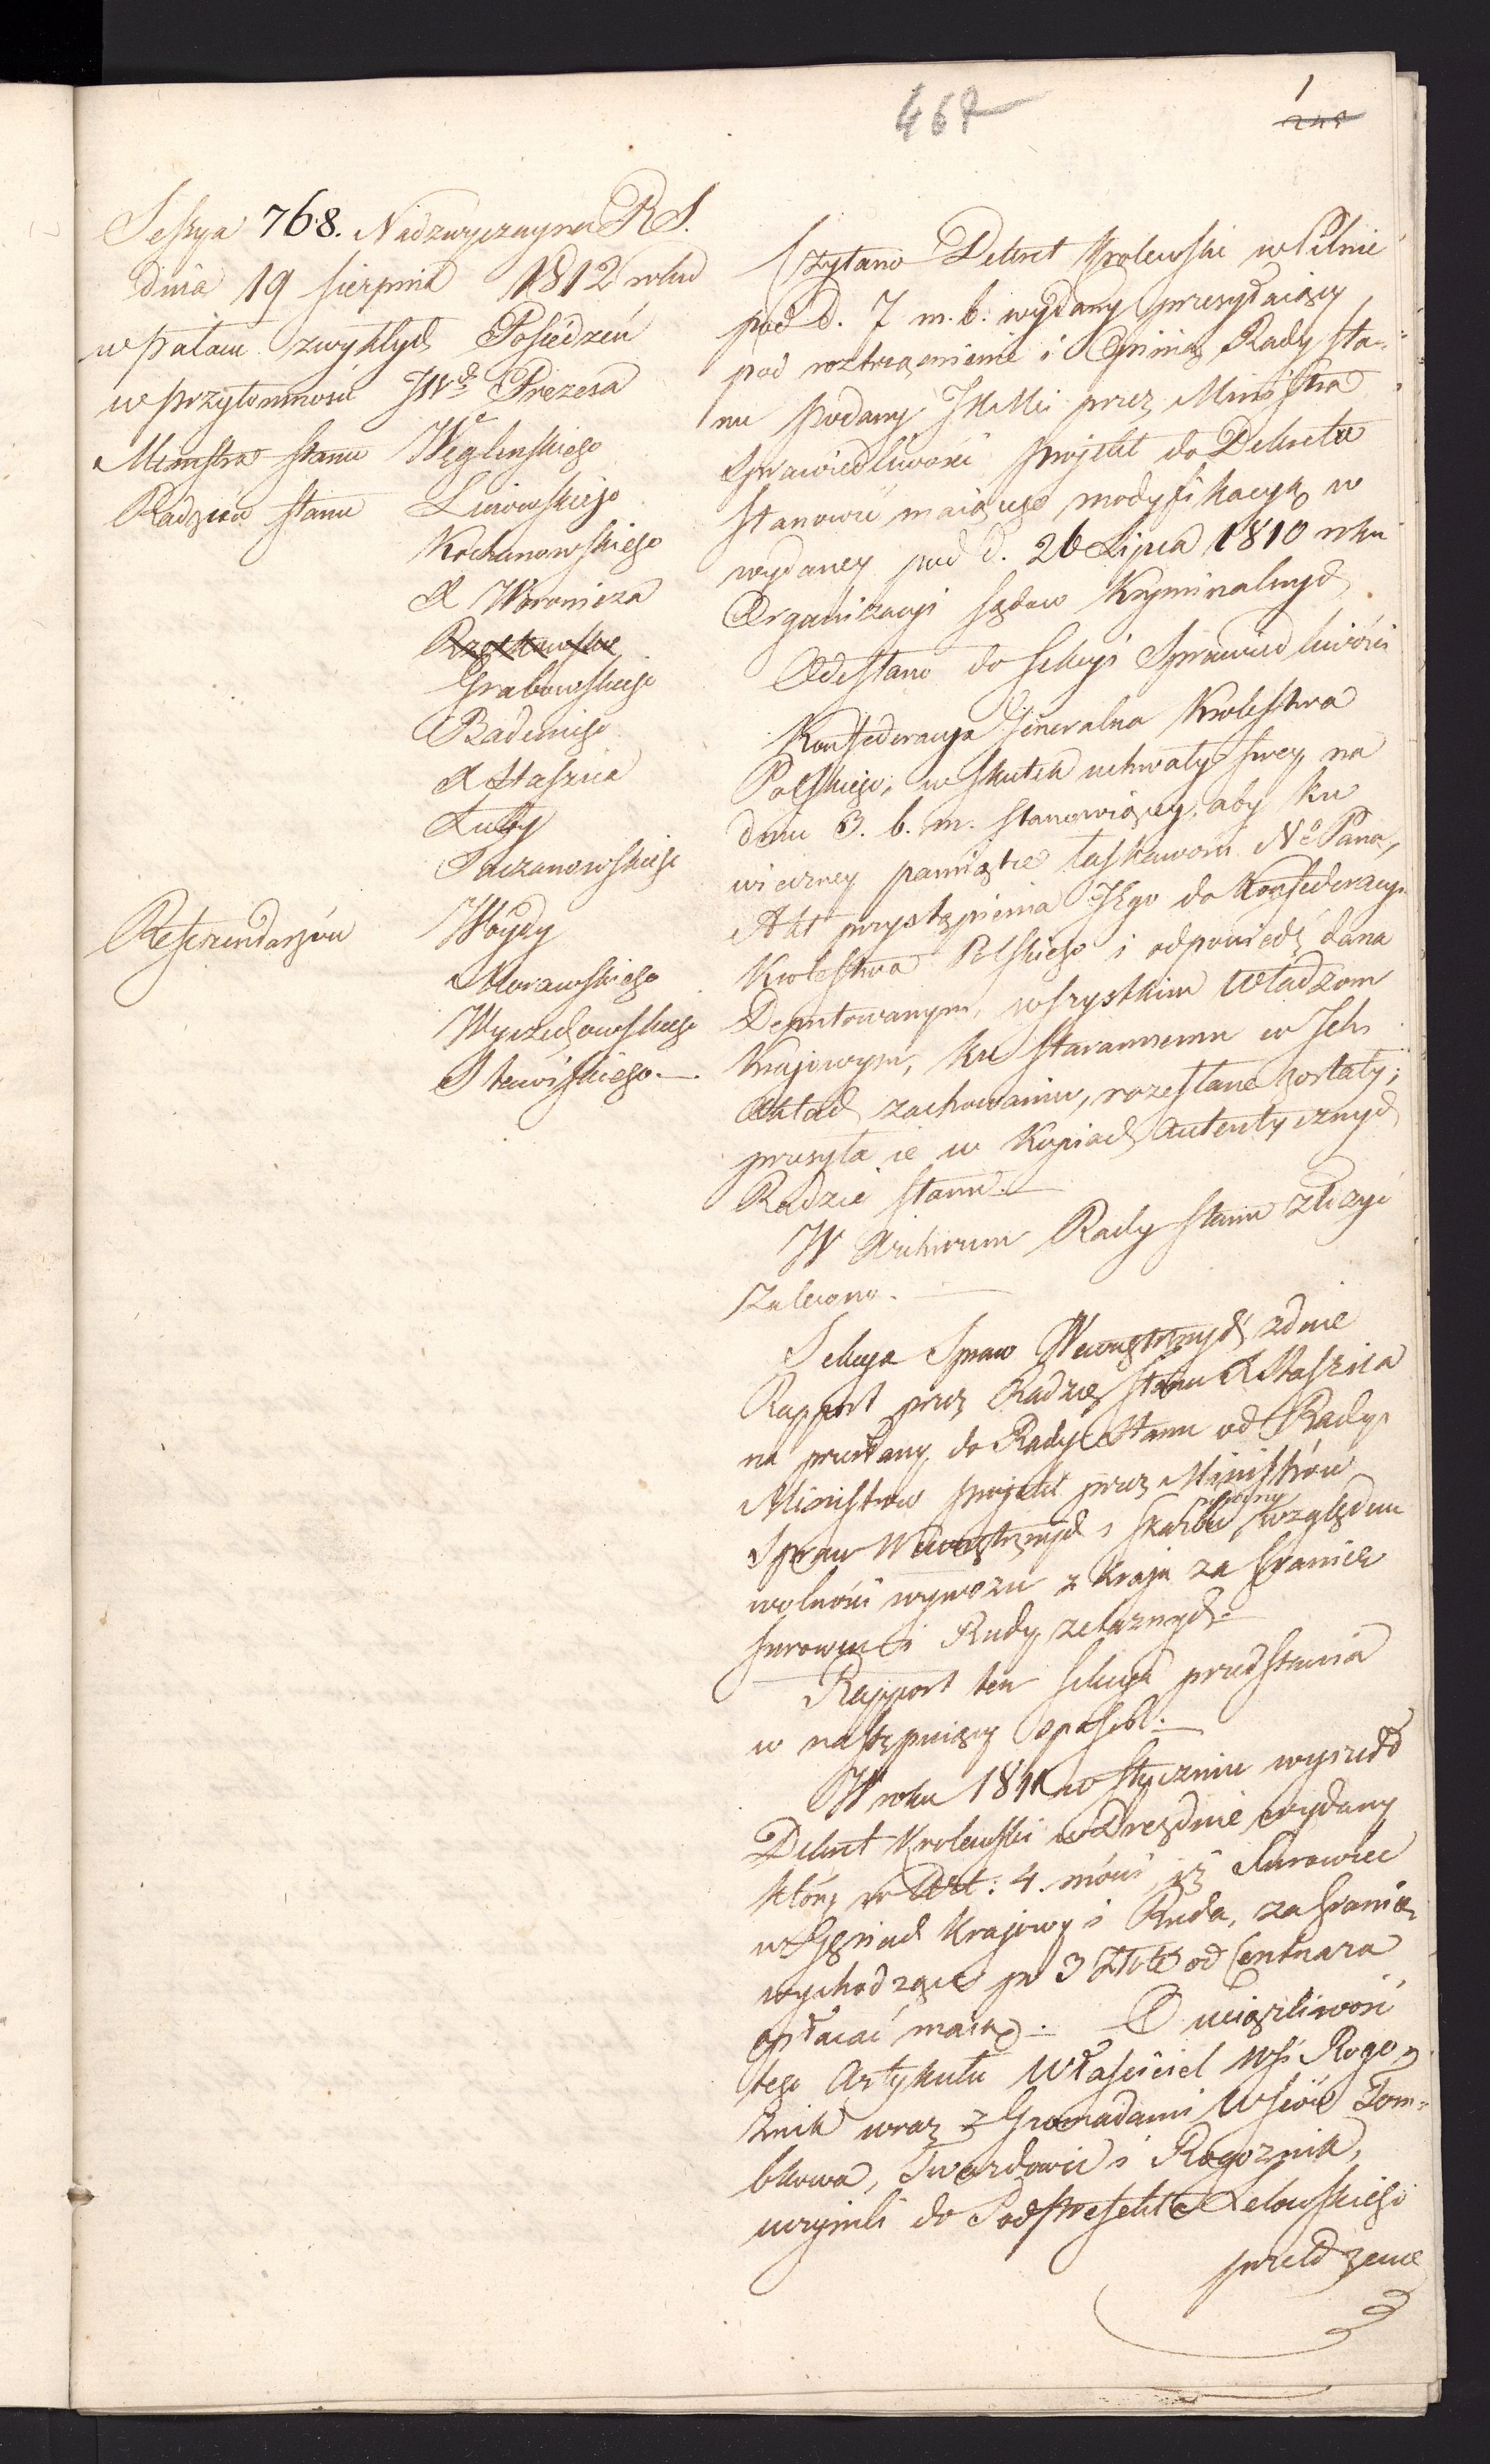 467
1
248
Sessya 768. Nadzwyczayna R S.
dnia 19 sierpnia 1812 roku
w pałacu zwykłych Posiedzeń
w przytomności JWgo Prezesa
Ministra Stanu Węglenskiego
Radzców Stanu Linowskiego
Kochanowskiego
X Woronicza
Grabowskiego
Badeniego
X Staszica
Łuby
Paczanowskiego
Referendarzów Woydy
Morawskiego
Wyczechowskiego
Czytano Dekret Krolewski w Pilnie
pod d. 7 m. b. wydany przesyłaiący
pod roztrząsnienie i Opinią Rady Sta-
nu podany JKMci przez Ministra
Sprawiedliwości projekt do Dekretu
stanowić maiącego modyfikacyą w
wydaney pod d. 26 Lipca 1810 roku
Organizacyi sądow Kryminalnych
Odesłano do Sekcyi Sprawiedliwości
Konfederacya Jeneralna Krolestwa
Polskiego, w skutek uchwały swey na
dniu 3. b. m. stanowiącey: aby ku
wieczney pamiątce łaskawości No Pana,
Akt przystąpienia Jego do Konfederacyi
Krolestwa Polskiego i odpowiedź dana
Deputowanym, wszystkim Władzom
Krajowym, ku starannemu w Ich
Aktach zachowaniu, rozesłane zostały;
przesyła ie w Kopiach Autentycznych
Radzie Stanu.
W Archiwum Rady Stanu złożyć
zalecono.
Sekcya Spraw Wewnętrznych zdaie
Rapport przez Radzcę Stanu X Staszica
na przesłany do Rady Stanu od Rady
Ministrow projekt przez Ministrów
Spraw Wewnętrznych i Skarbu podany względem
wolności wywozu z kraju za Granice
surowcu i Rudy żelaznych.
Rapport ten Sekcya przedstawia
w następuiący sposób:
W roku 1811 w styczniu wyszedł
Dekret Krolewski w Dreźnie wydany
który w Art: 4. mówi, iż Surowiec
w Gęsiach krajowy i Ruda, za Granicę
wychodzące po 3 złote od Centnara
opłacać maią. O uciążliwość
tego Artykułu Właściciel Wsi Rogo-
znik wraz z Gromadami Wsiów Tom-
bkowa, Twardowic i Rogoznik,
uczynili do Podprefekta Lelowskiego
przełożenie